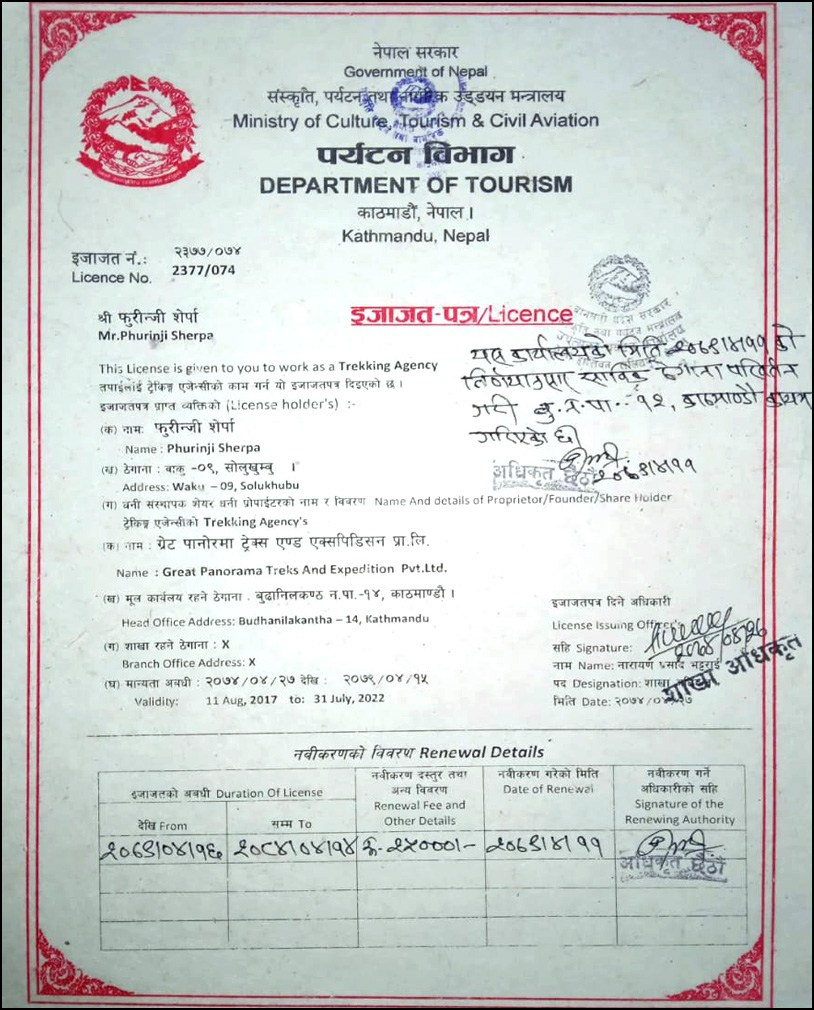 नेपाल सरकार
Government of Nepal
संस्कृति, पर्यटन तथा नागरिक उड्डयन मन्त्रालय
Ministry of Culture, Tourism & Civil Aviation
पर्यटन विभाग
DEPARTMENT OF TOURISM
काठमाडौं, नेपाल ।
Kathmandu, Nepal
इजाजत नं.: २३७७/०७४
Licence No. 2377/074
इजाजत-पत्र/Licence
श्री फुरीन्जी शेर्पा
Mr.Phurinji Sherpa
यस कार्यालयको मिति २०७९।४।११ को
निर्णयानुसार साविक ठेगाना परिवर्तन
गरी बु.न.पा.-१२, काठमाण्डौ कायम
गरिएको छ।
२०७९।४।११
अधिकृत छैठौं
This License is given to you to work as a Trekking Agency
तपाईलाई ट्रेकिङ्ग एजेन्सीको काम गर्न यो इजाजतपत्र दिइएको छ ।
इजाजतपत्र प्राप्त ब्यक्तिको (License holder's) :-
(क) नाम: फुरीन्जी शेर्पा
Name : Phurinji Sherpa
(ख) ठेगाना: वाकु -०९, सोलुखुम्बु ।
Address: Waku – 09, Solukhubu
(ग) धनी संस्थापक शेयर धनी प्रोपाईटरको नाम र विवरण Name And details of Proprietor/Founder/Share Holder
ट्रेकिङ्ग एजेन्सीको Trekking Agency's
(क) नाम : ग्रेट पानोरमा ट्रेक्स एण्ड एक्सपिडिसन प्रा.लि.
Name : Great Panorama Treks And Expedition Pvt.Ltd.
(ख) मूल कार्यलय रहने ठेगाना : बुढानिलकण्ठ न.पा.-१४, काठमाण्डौ ।
Head Office Address: Budhanilakantha – 14, Kathmandu
(ग) शाखा रहने ठेगाना : X
Branch Office Address: X
(घ) मान्यता अवधी : २०७४/०४/२७ देखि : २०७९/०४/१५
Validity: 11 Aug, 2017 to: 31 July, 2022
इजाजतपत्र दिने अधिकारी
License Issuing Officer's
सहि Signature:
नाम Name: नारायण प्रसाद भट्टराई
पद Designation: शाखा अधिकृत
शाखा अधिकृत
मिति Date: २०७४/०४/२७
नवीकरणको विवरण Renewal Details
इजाजतको अवधी Duration Of License
देखि From
सम्म To
नवीकरण दस्तुर तथा
अन्य विवरण
Renewal Fee and
Other Details
नवीकरण गरेको मिति
Date of Renewal
नवीकरण गर्ने
अधिकारीको सहि
Signature of the
Renewing Authority
२०७९।०४।१६ २०८४।०४।१५ रु. २५०००।- २०७९।४।११
अधिकृत छैठौं